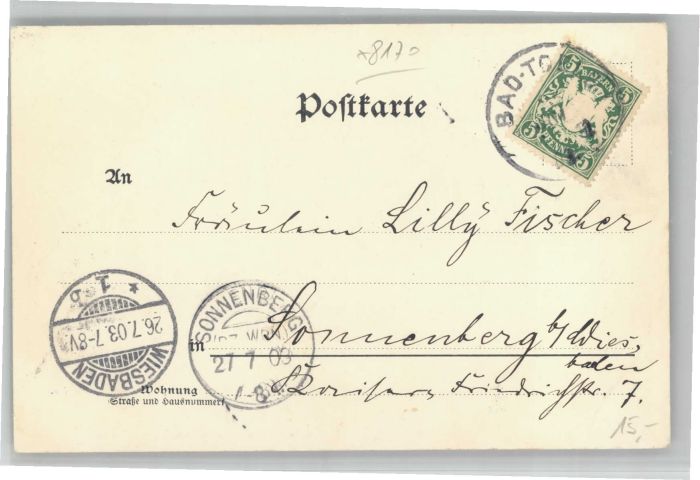 *8170
Postkarte
BAD-TÖ
5 BAYERN 5
5 PFENNIG 5
An
Fräulein Lilly Fischer
WIESBADEN
1 b.
*
26.7.03.7-8V.
SONNENBERG
(BZ. WBN.)
27 7 03
7-8
in Sonnenberg b/Wies,
baden
Wohnung
(Straße und Hausnummer)
Kaiser Friedrichstr. 7.
15,-